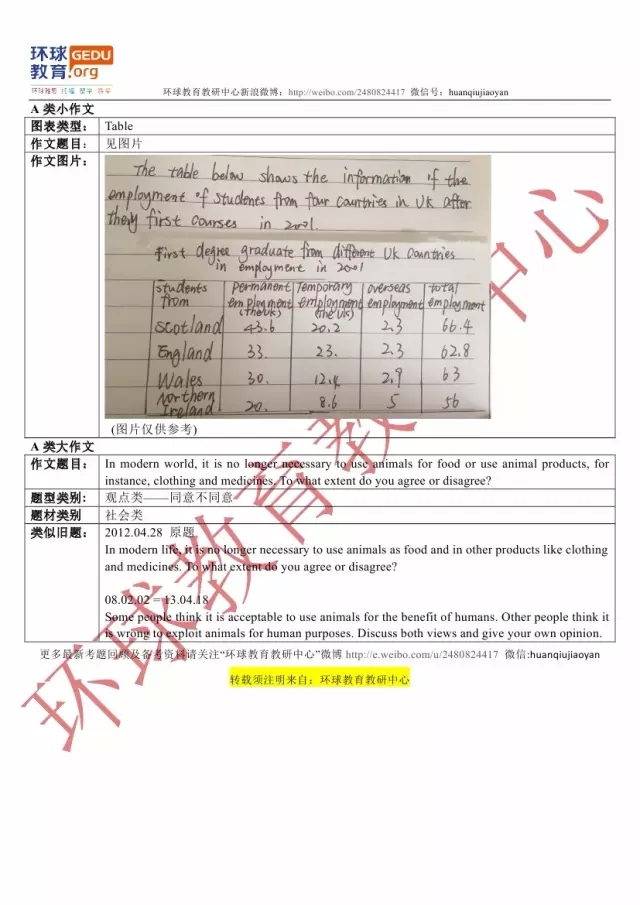 环球 GEDU
教育.org
环球雅思 托福 留学 游学
环球教育教研中心新浪微博：http://weibo.com/2480824417 微信号：huanqiujiaoyan
A 类小作文
图表类型： Table
作文题目： 见图片
作文图片：
The table below shows the information of the
employment of students from four countries in UK after
they first courses in 2001.
First degree graduate from different UK countries
in employment in 2001
students from permanent employment (the UK) Temporary employment (the UK) overseas employment total employment
Scotland 43.6 20.2 2.3 66.4
England 33. 23. 2.3 62.8
Wales 30. 12.4 2.9 63
Northern Ireland 20. 8.6 5 56
(图片仅供参考)
A 类大作文
作文题目： In modern world, it is no longer necessary to use animals for food or use animal products, for
instance, clothing and medicines. To what extent do you agree or disagree?
题型类别： 观点类——同意不同意
题材类别 社会类
类似旧题： 2012.04.28 原题
In modern life, it is no longer necessary to use animals as food and in other products like clothing
and medicines. To what extent do you agree or disagree?
08.02.02 = 13.04.18
Some people think it is acceptable to use animals for the benefit of humans. Other people think it
is wrong to exploit animals for human purposes. Discuss both views and give your own opinion.
更多最新考题回顾及备考资料请关注“环球教育教研中心”微博 http://e.weibo.com/u/2480824417 微信:huanqiujiaoyan
转载须注明来自：环球教育教研中心
环球教育教研中心